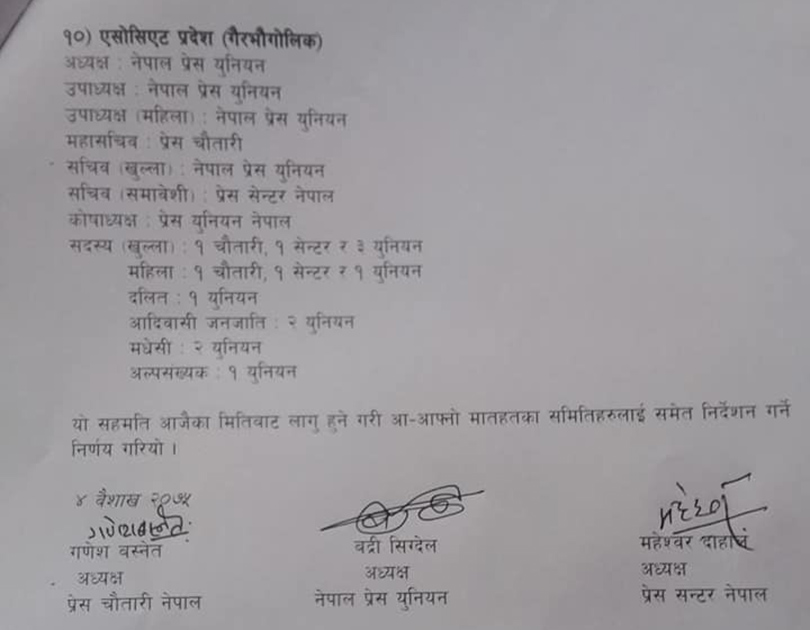 १०) एसोसिएट प्रदेश (गैरभौगोलिक)
अध्यक्ष : नेपाल प्रेस युनियन
उपाध्यक्ष : नेपाल प्रेस युनियन
उपाध्यक्ष (महिला) : नेपाल प्रेस युनियन
महासचिव : प्रेस चौतारी
सचिव (खुल्ला) : नेपाल प्रेस युनियन
सचिव (समावेशी) : प्रेस सेन्टर नेपाल
कोषाध्यक्ष : प्रेस युनियन नेपाल
सदस्य (खुल्ला) : १ चौतारी, १ सेन्टर र ३ युनियन
महिला : १ चौतारी, १ सेन्टर र १ युनियन
दलित : १ युनियन
आदिवासी जनजाति : २ युनियन
मधेसी : २ युनियन
अल्पसंख्यक : १ युनियन
यो सहमति आजैका मितिबाट लागु हुने गरी आ-आफ्नो मातहतका समितिहरुलाई समेत निर्देशन गर्ने
निर्णय गरियो ।
४ वैशाख २०७५
गणेश बस्नेत बद्री सिग्देल महेश्वर दाहाल
अध्यक्ष अध्यक्ष अध्यक्ष
प्रेस चौतारी नेपाल नेपाल प्रेस युनियन प्रेस सन्टर नेपाल